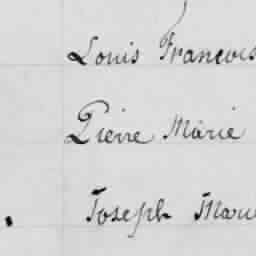 Louis Francois
Pierre Marie
Joseph Marie